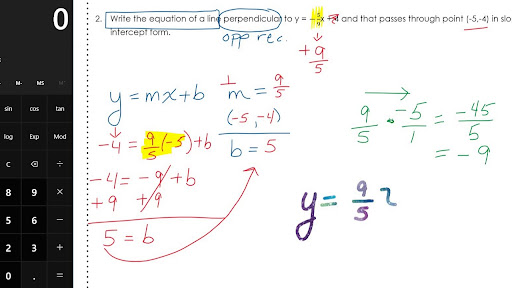 0
2. Write the equation of a line perpendicular to y = -5/9x + and that passes through point (-5,-4) in slo
intercept form.
opp rec.
+ 9/5
y = mx+b
⊥ m = 9/5
(-5, -4)
b = 5
-4 = 9/5 (-5) + b
-4 = -9 + b
+9 +9
5 = b
9/5 · -5/1 = -45/5
= -9
y = 9/5
M- MS
sin cos tan
log Exp Mod
C ⌫ ÷
8 9 ×
5 6 -
2 3 +
0 . =